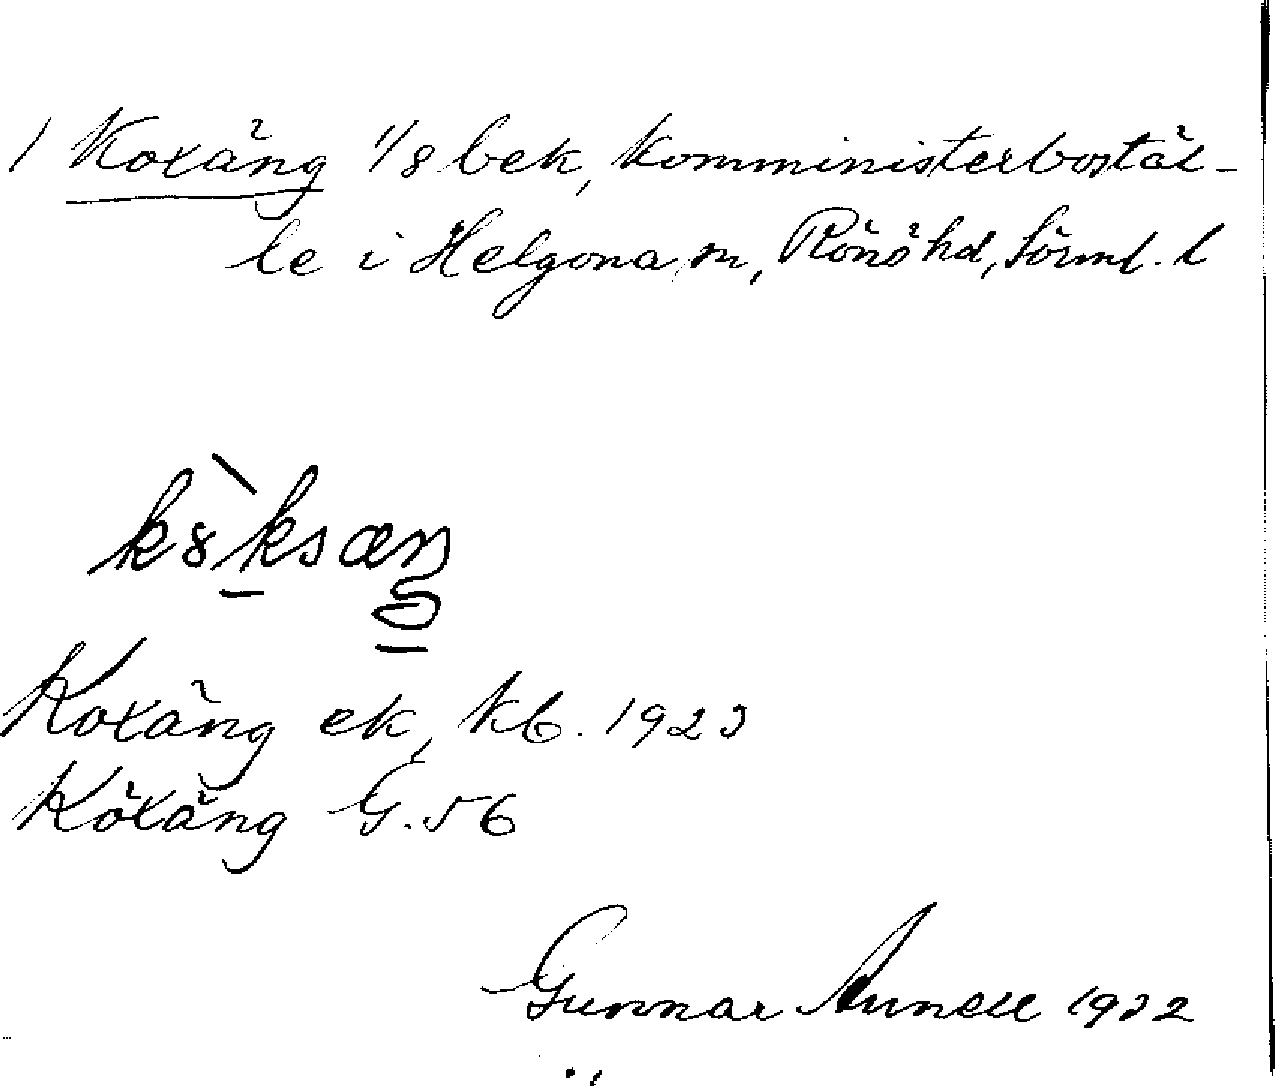 1 Koxäng 1/8 bek, komministerbostäl-
le i Helgona sn, Rönö hd, Sörml. l
Koxäng ek, kb. 1923
Köxäng G. 56
Gunnar Arnell 1932